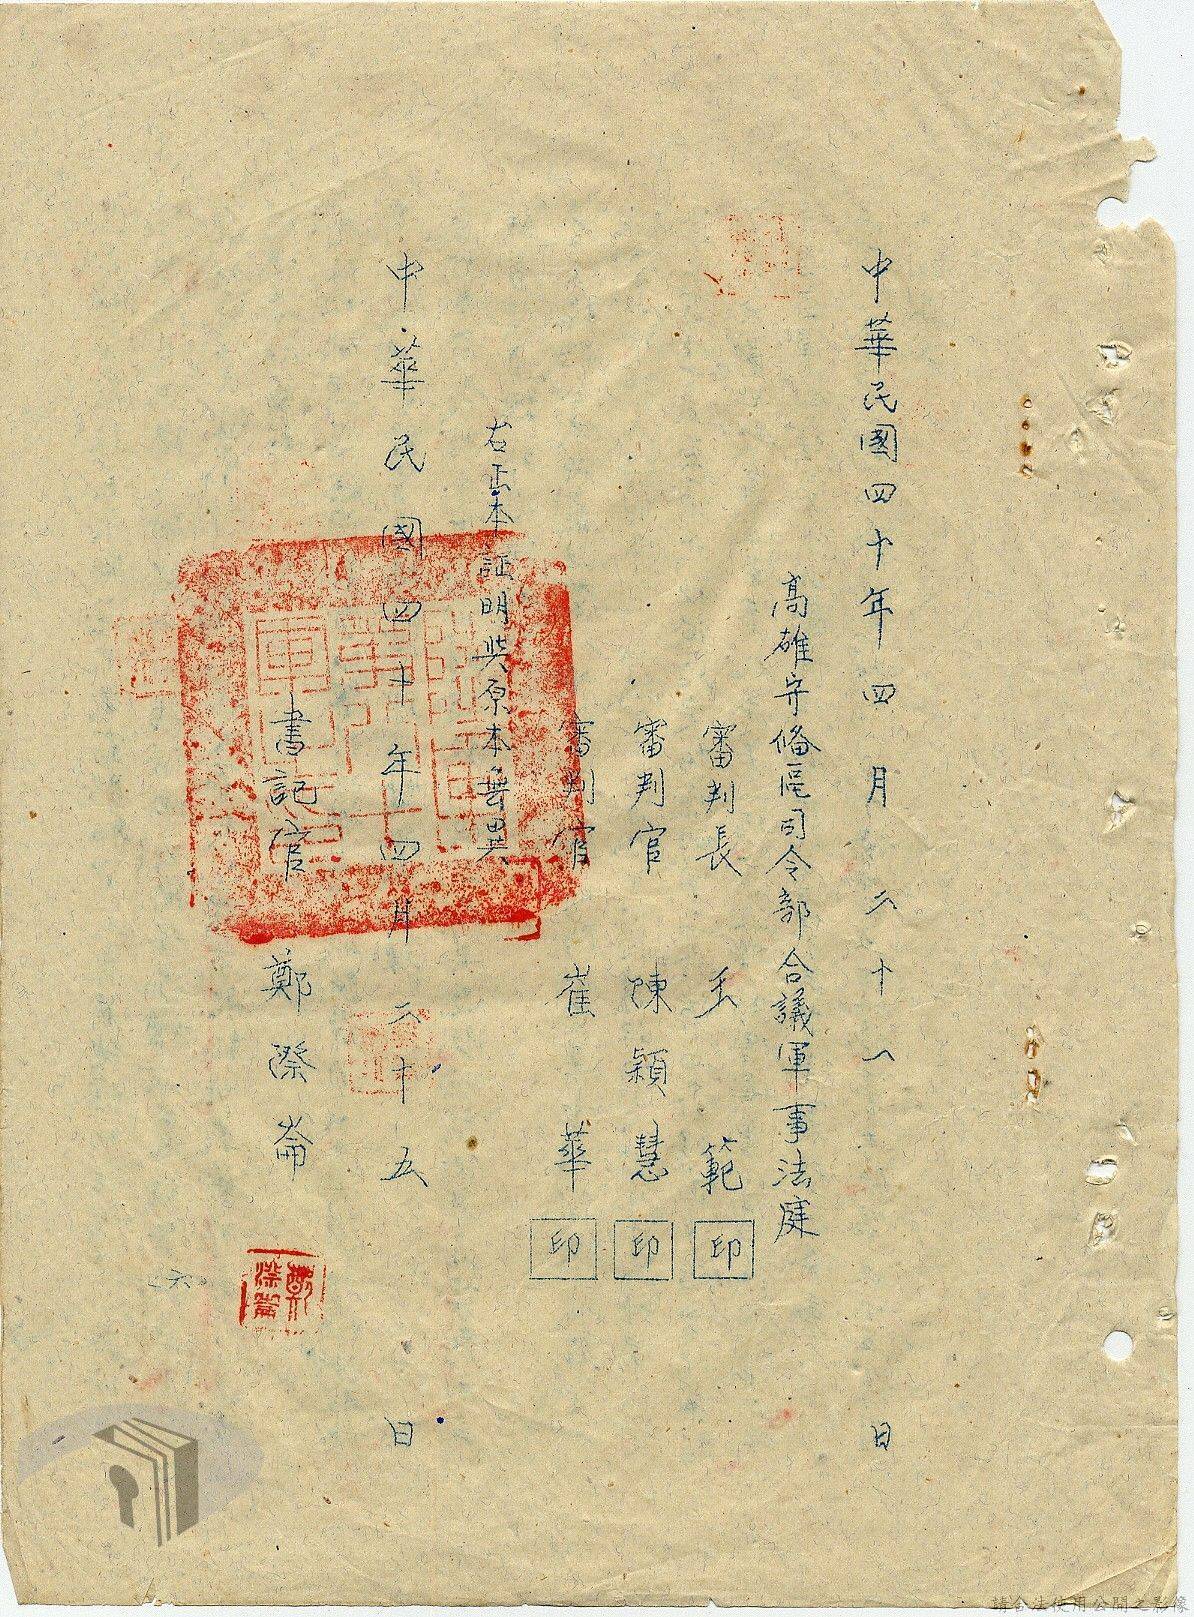 中華民國四十年四月二十一日
高雄守俻區司令部合議軍事法庭
審判長 王範 印
審判官 陳穎慧 印
審判官 崔華 印
右正本証明與原本無異
中華民國四十年四月二十五日
書記官 鄭際崙
鄭際崙
六
請合法使用公開之影像